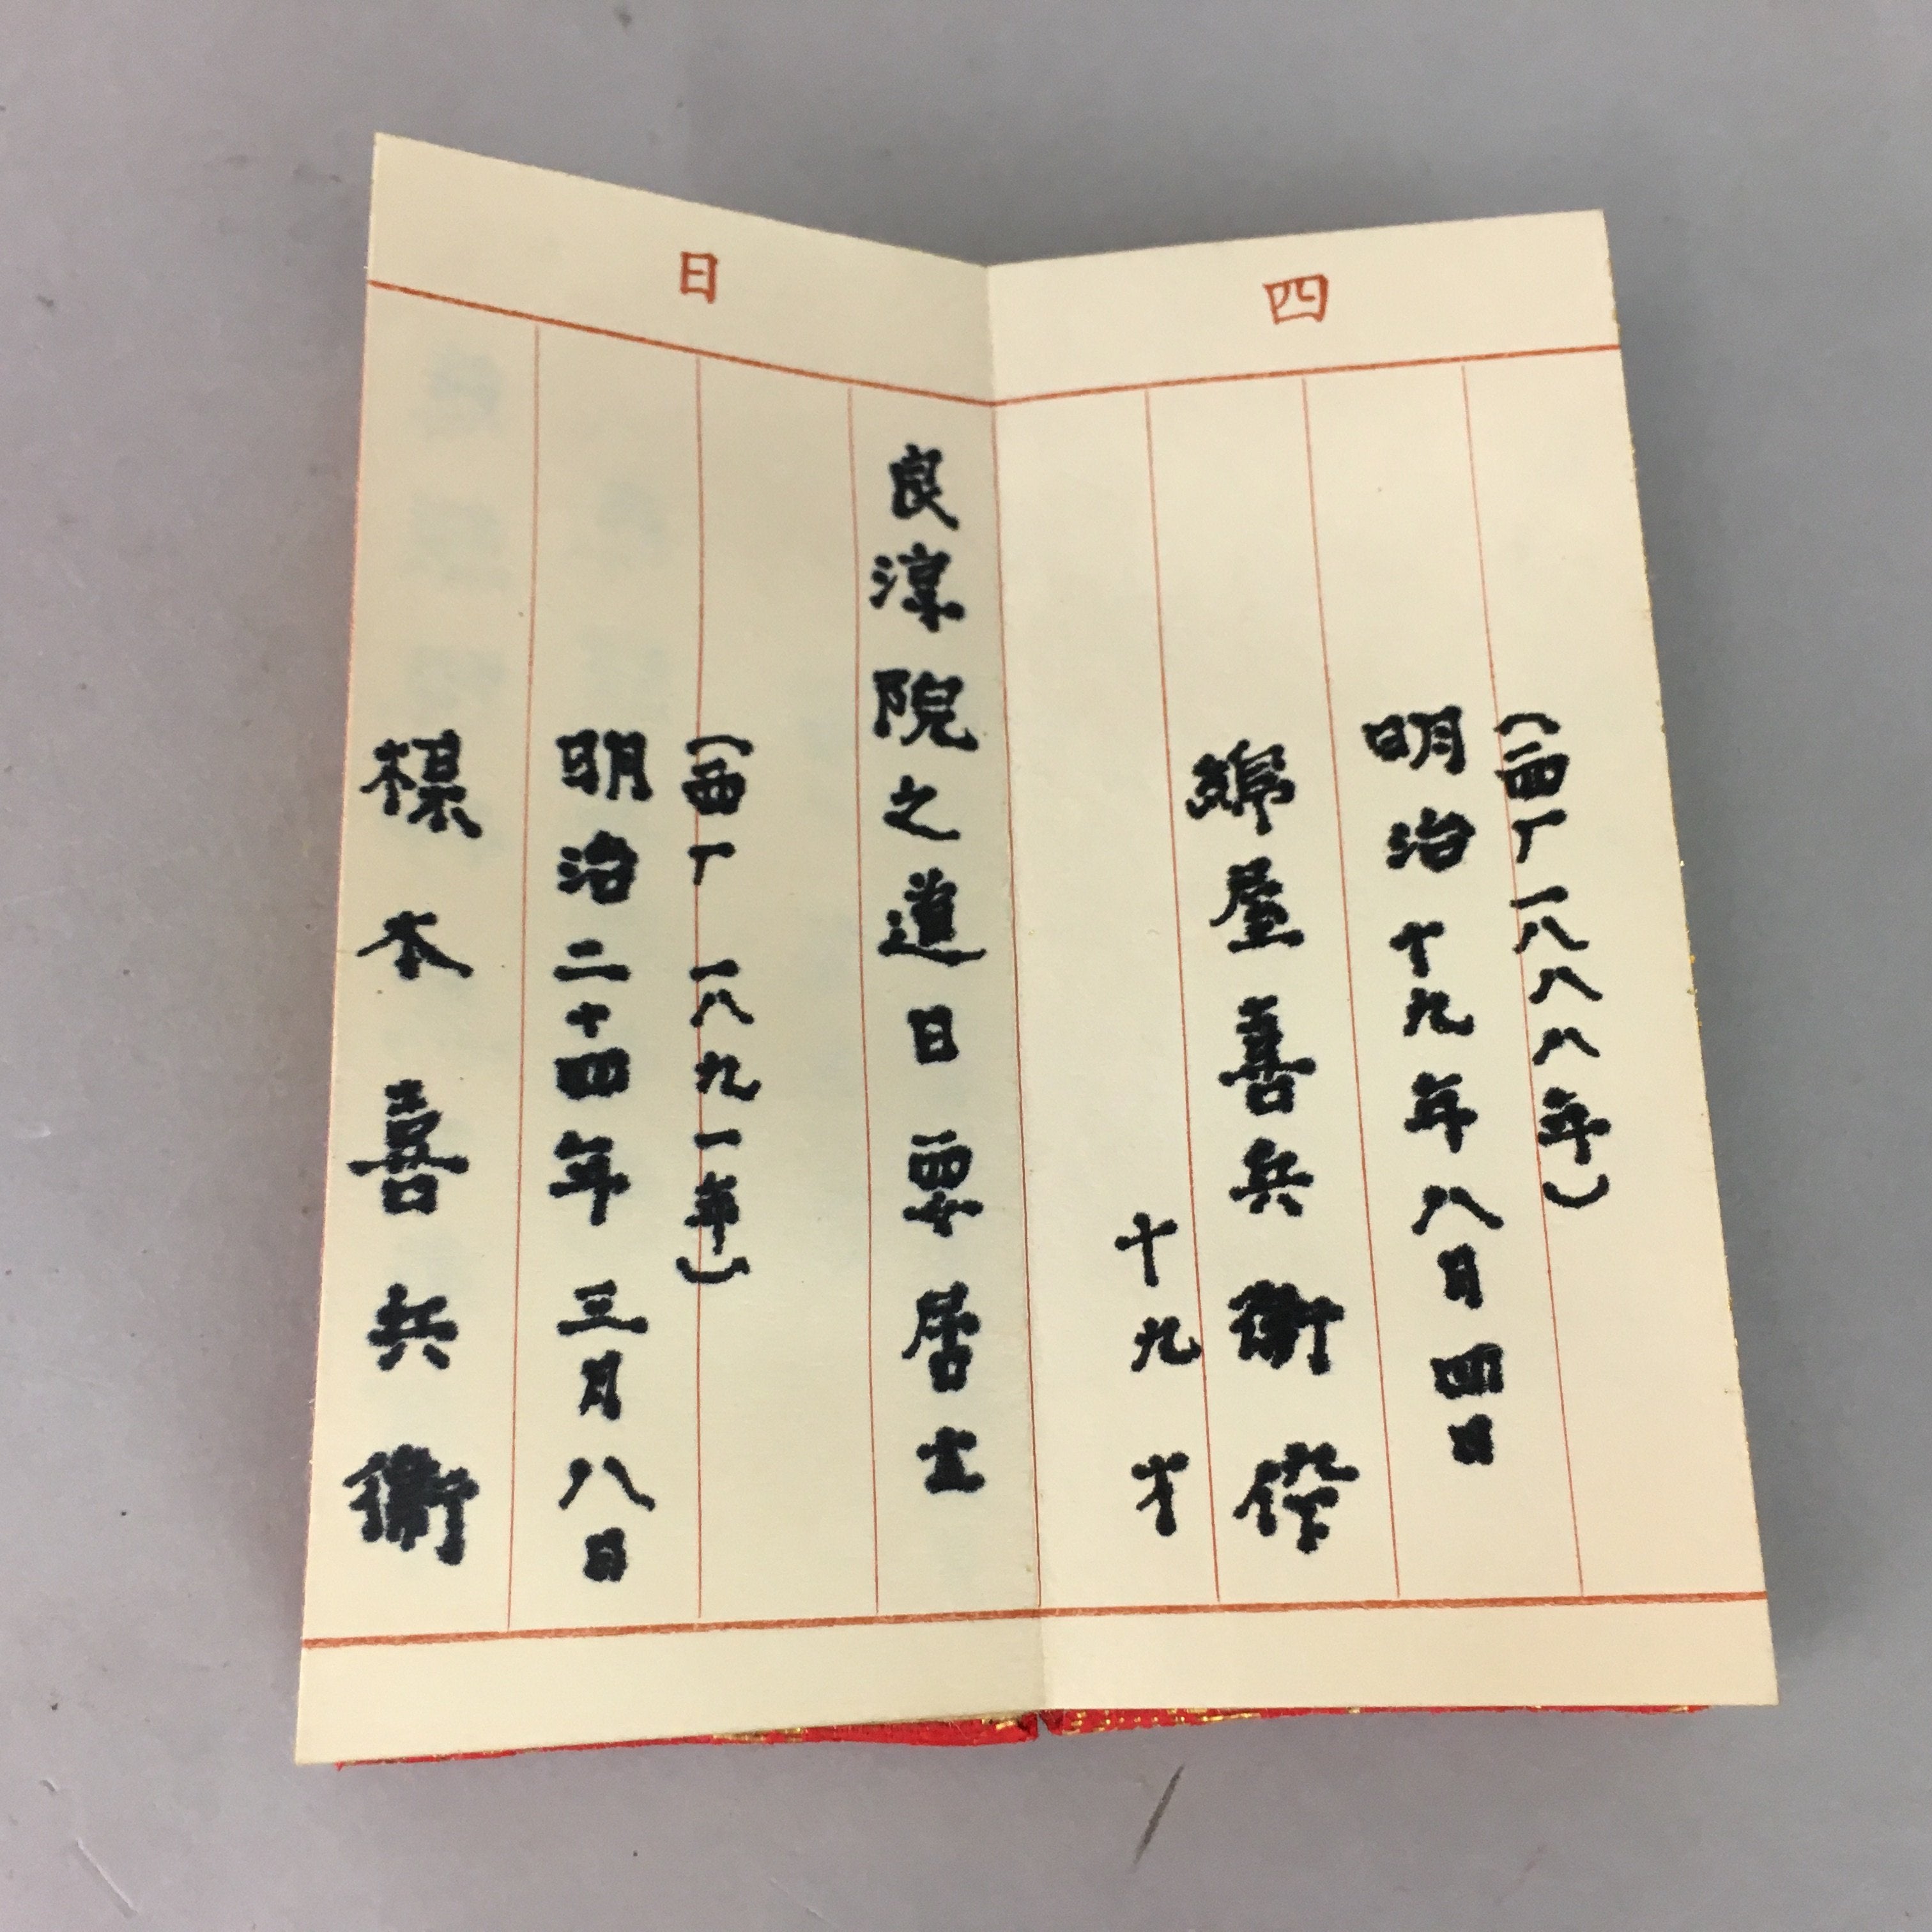 四
(西厂一八八八年)
明治十九年八月四日
綿屋善兵衛倅
十九才
日
良淳院之道日要居士
(西厂一八九一年)
明治二十四年三月八日
本喜兵衛